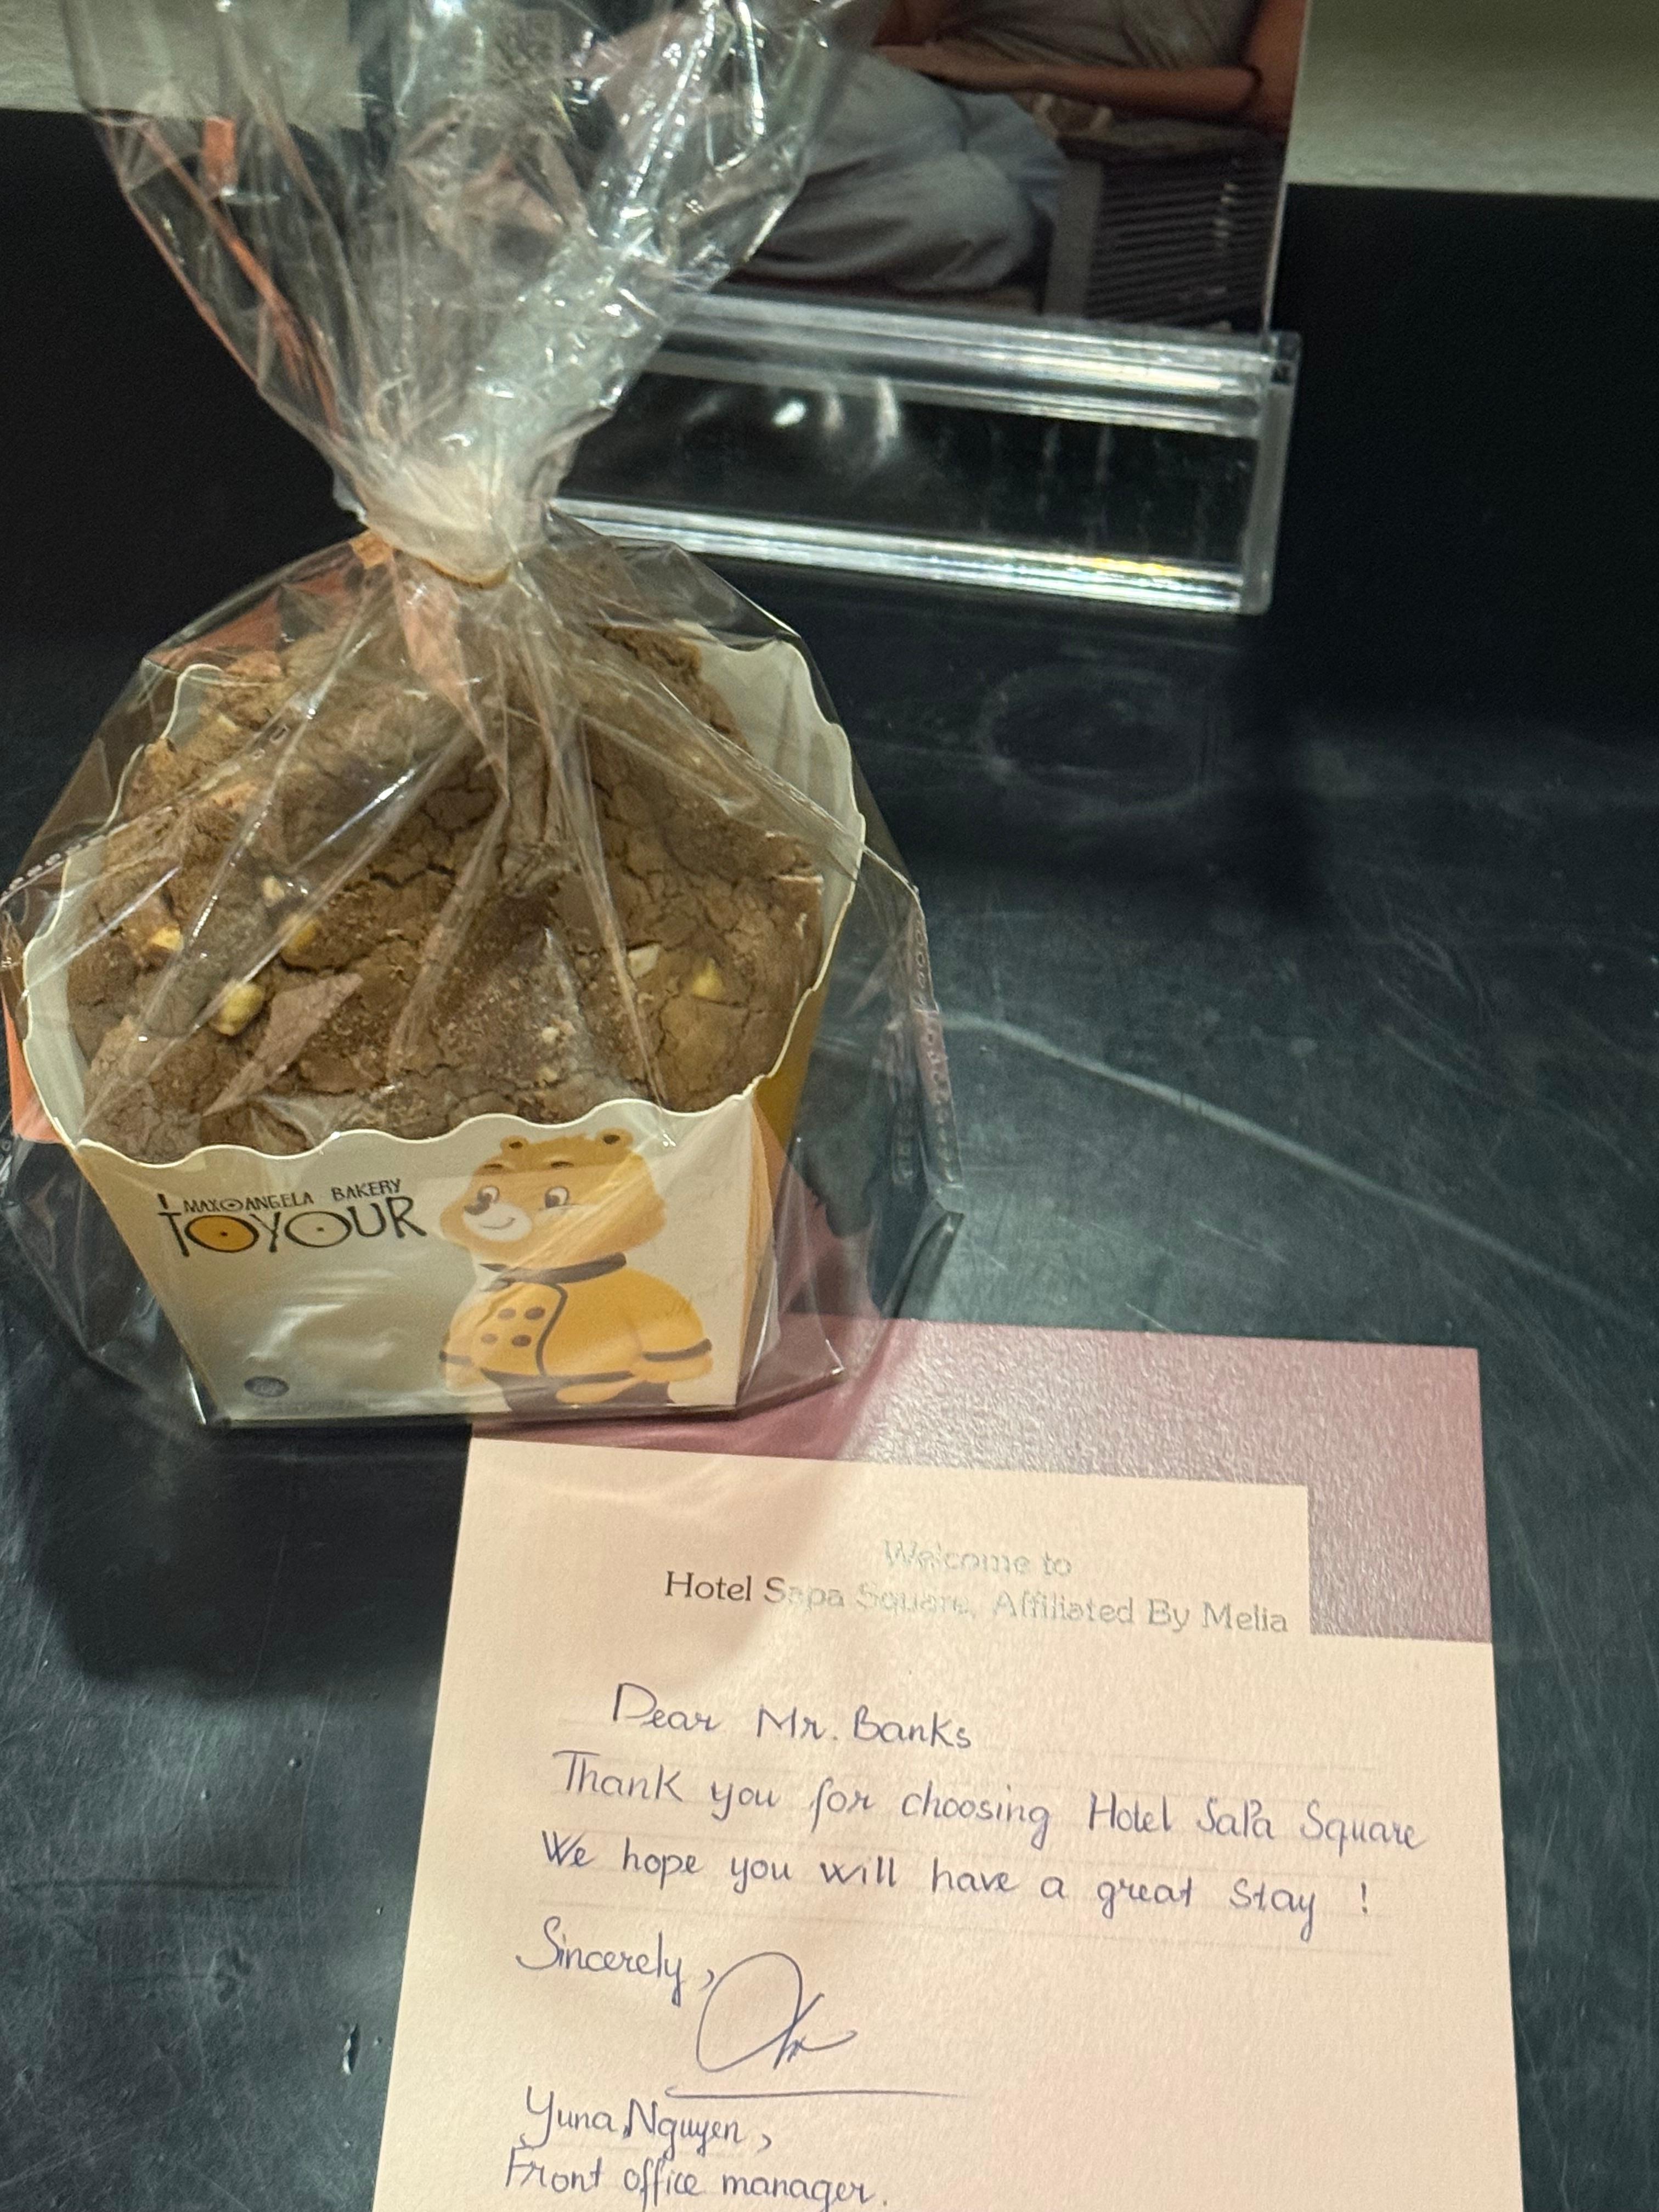 MAX ANGELA BAKERY
TOYOUR
Welcome to
Hotel Sapa Square, Affiliated By Melia
Dear Mr. Banks
Thank you for choosing Hotel SaPa Square
We hope you will have a great stay !
Sincerely,
Yuna Nguyen,
Front office manager.